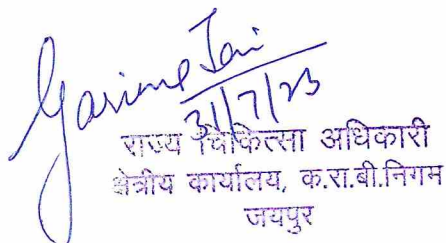 Garima Jain
31/7/23
राज्य चिकित्सा अधिकारी
क्षेत्रीय कार्यालय, क.रा.बी.निगम
जयपुर